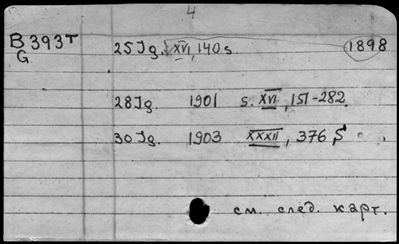 4
B 393T 25 Jg. XVI, 140 s. 1898
G.
28 Jg. 1901 s. XVI, 151-282.
30 Jg. 1903 XXXII, 376, S
см. след. карт.